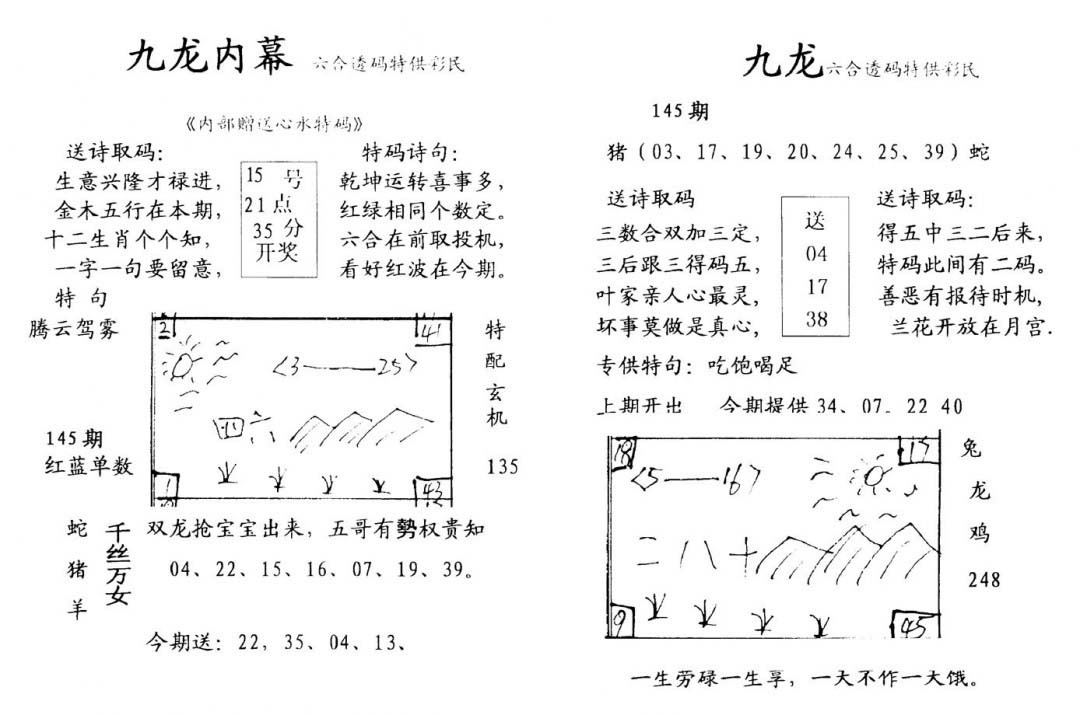 九龙内幕 六合透码特供彩民
《内部赠送心水特码》
送诗取码:
生意兴隆才禄进,
金木五行在本期,
十二生肖个个知,
一字一句要留意,
15 号
21点
35 分
开奖
特码诗句:
乾坤运转喜事多,
红绿相同个数定。
六合在前取投机,
看好红波在今期。
特 句
腾云驾雾
145期
红蓝单数
2
41
<3——25>
四六
1
43
特
配
玄
机
135
蛇
猪
羊
千丝万女
双龙抢宝宝出来, 五哥有勢权贵知
04、22、15、16、07、19、39。
今期送: 22, 35、04、13、
九龙六合透码特供彩民
145期
猪(03、17、19、20、24、25、39)蛇
送诗取码
三数合双加三定,
三后跟三得码五,
叶家亲人心最灵,
坏事莫做是真心,
送
04
17
38
送诗取码:
得五中三二后来,
特码此间有二码。
善恶有报待时机,
兰花开放在月宫.
专供特句: 吃饱喝足
上期开出 今期提供 34、07、22 40
18
17
<5——16>
二八十
9
45
兔
龙
鸡
248
一生劳碌一生享, 一大不作一大饿。